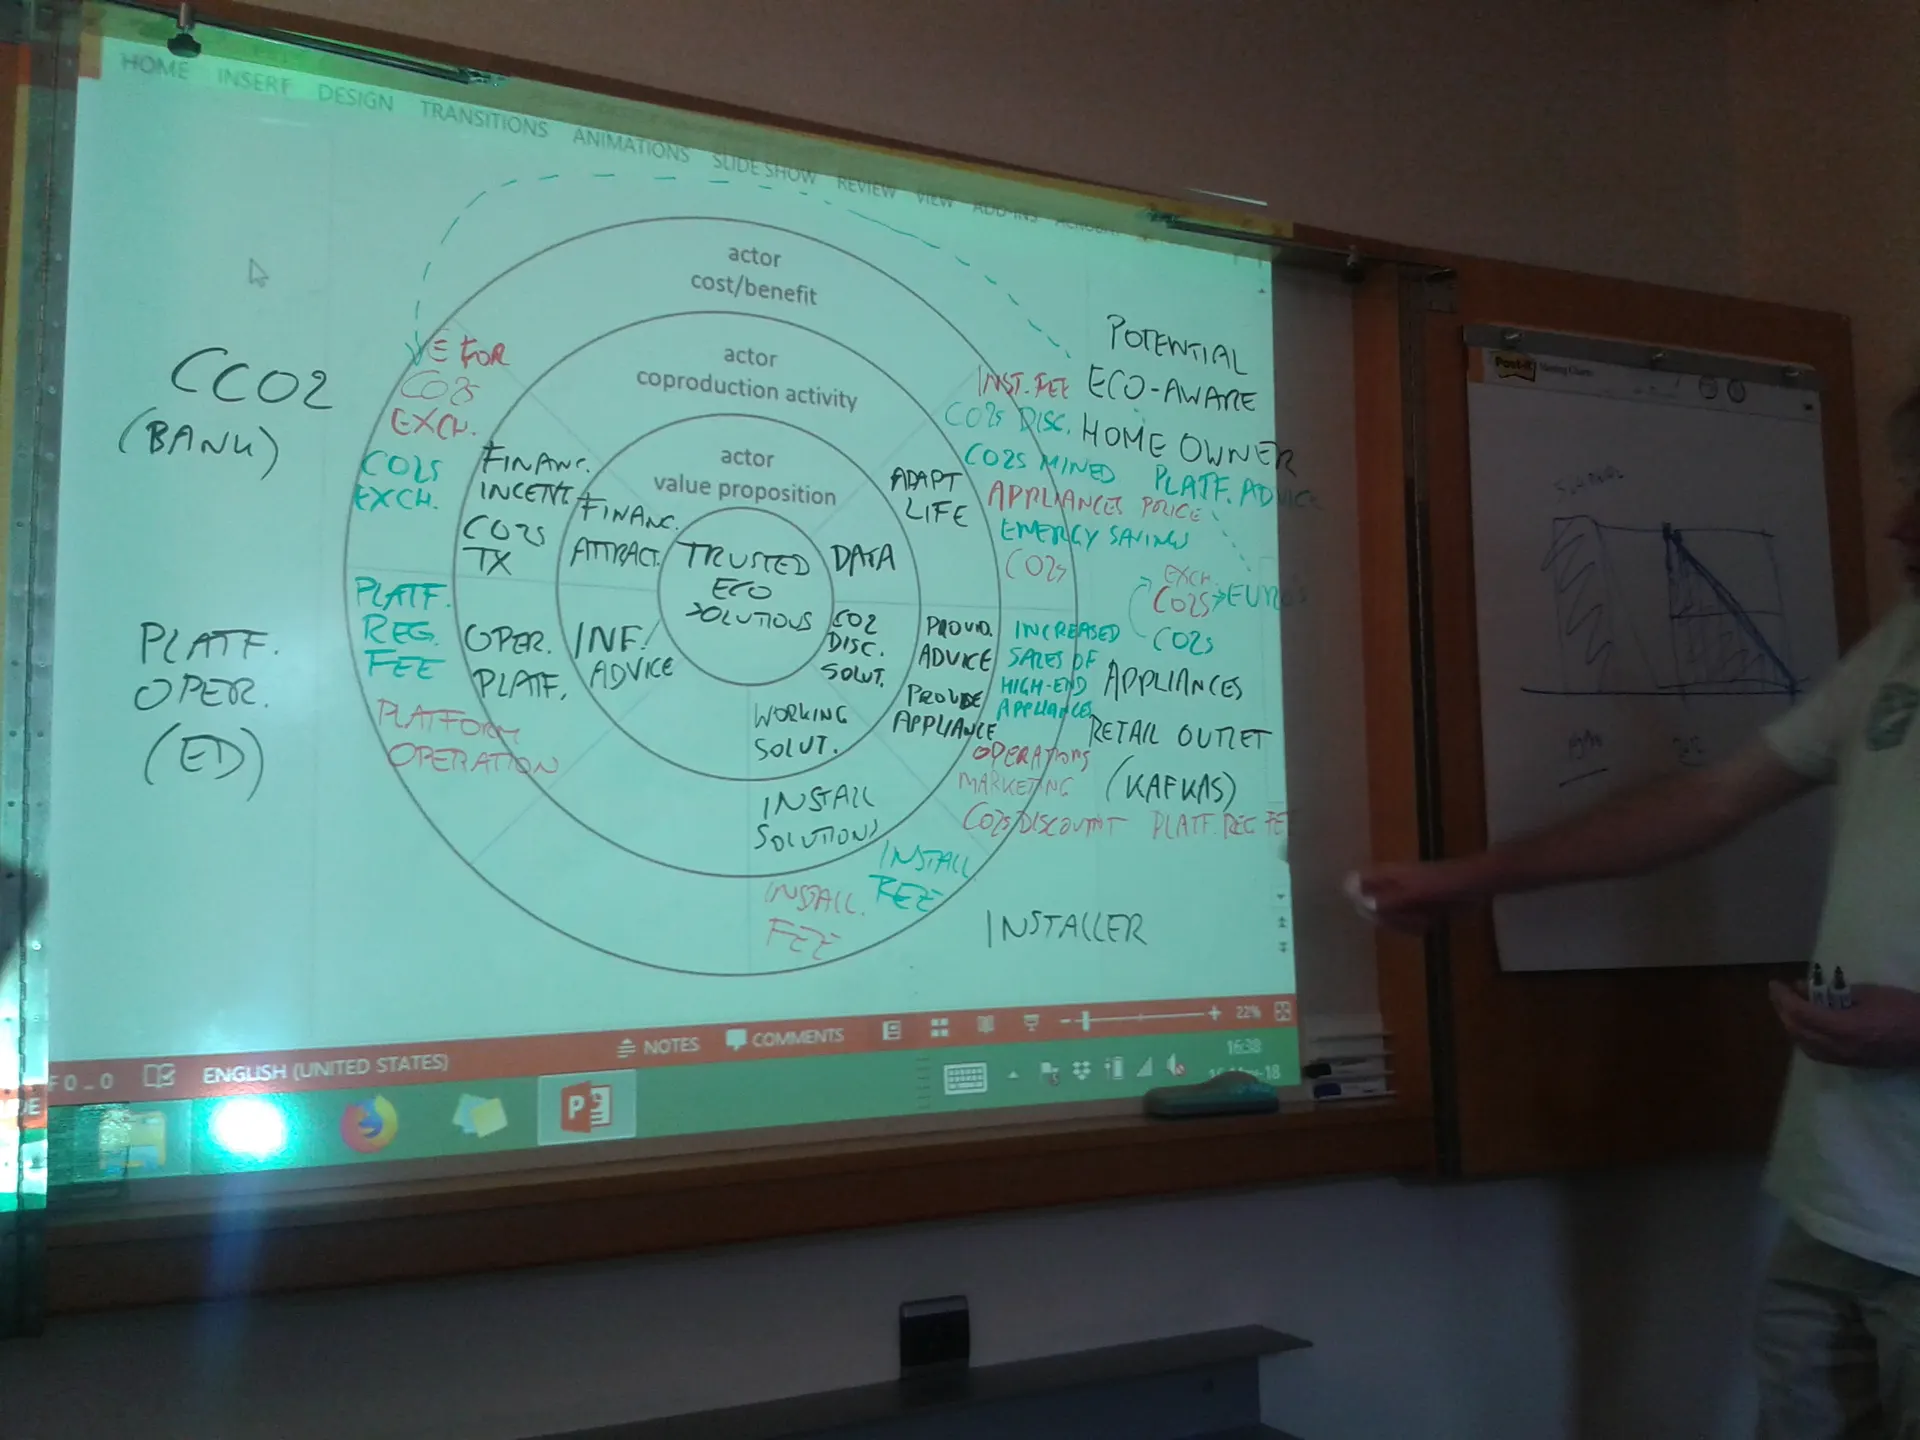 HOME INSERT DESIGN TRANSITIONS ANIMATIONS SLIDE SHOW REVIEW VIEW ADD-INS
actor
cost/benefit
actor
coproduction activity
actor
value proposition
TRUSTED
ECO
SOLUTIONS
CCO2
(BANK)
€ FOR
CO2s
EXCH.
CO2S
EXCH.
FINANC.
INCENT.
CO2s
TX
FINANC.
ATTRACT.
DATA
ADAPT
LIFE
POTENTIAL
ECO-AWARE
HOME OWNER
INST. FEE
CO2s DISC.
CO2S MINED
PLATF. ADVICE
APPLIANCES PRICE
ENERGY SAVINGS
CO2s
EXCH.
CO2S
CO2s
PLATF.
OPER.
(ED)
PLATF.
REG.
FEE
PLATFORM
OPERATION
OPER.
PLATF.
INF/
ADVICE
CO2
DISC.
SOLUT.
PROVID.
ADVICE
PROVIDE
APPLIANCE
INCREASED
SALES OF
HIGH-END
APPLIANCES
OPERATIONS
MARKETING
CO2s/DISCOUNT PLATF. REG FEE
APPLIANCES
RETAIL OUTLET
(KAFKAS)
WORKING
SOLUT.
INSTALL
SOLUTIONS
INSTALL
FEE
INSTALL.
FEE
INSTALLER
NOTES COMMENTS 22%
ENGLISH (UNITED STATES)
16:38
Post-it